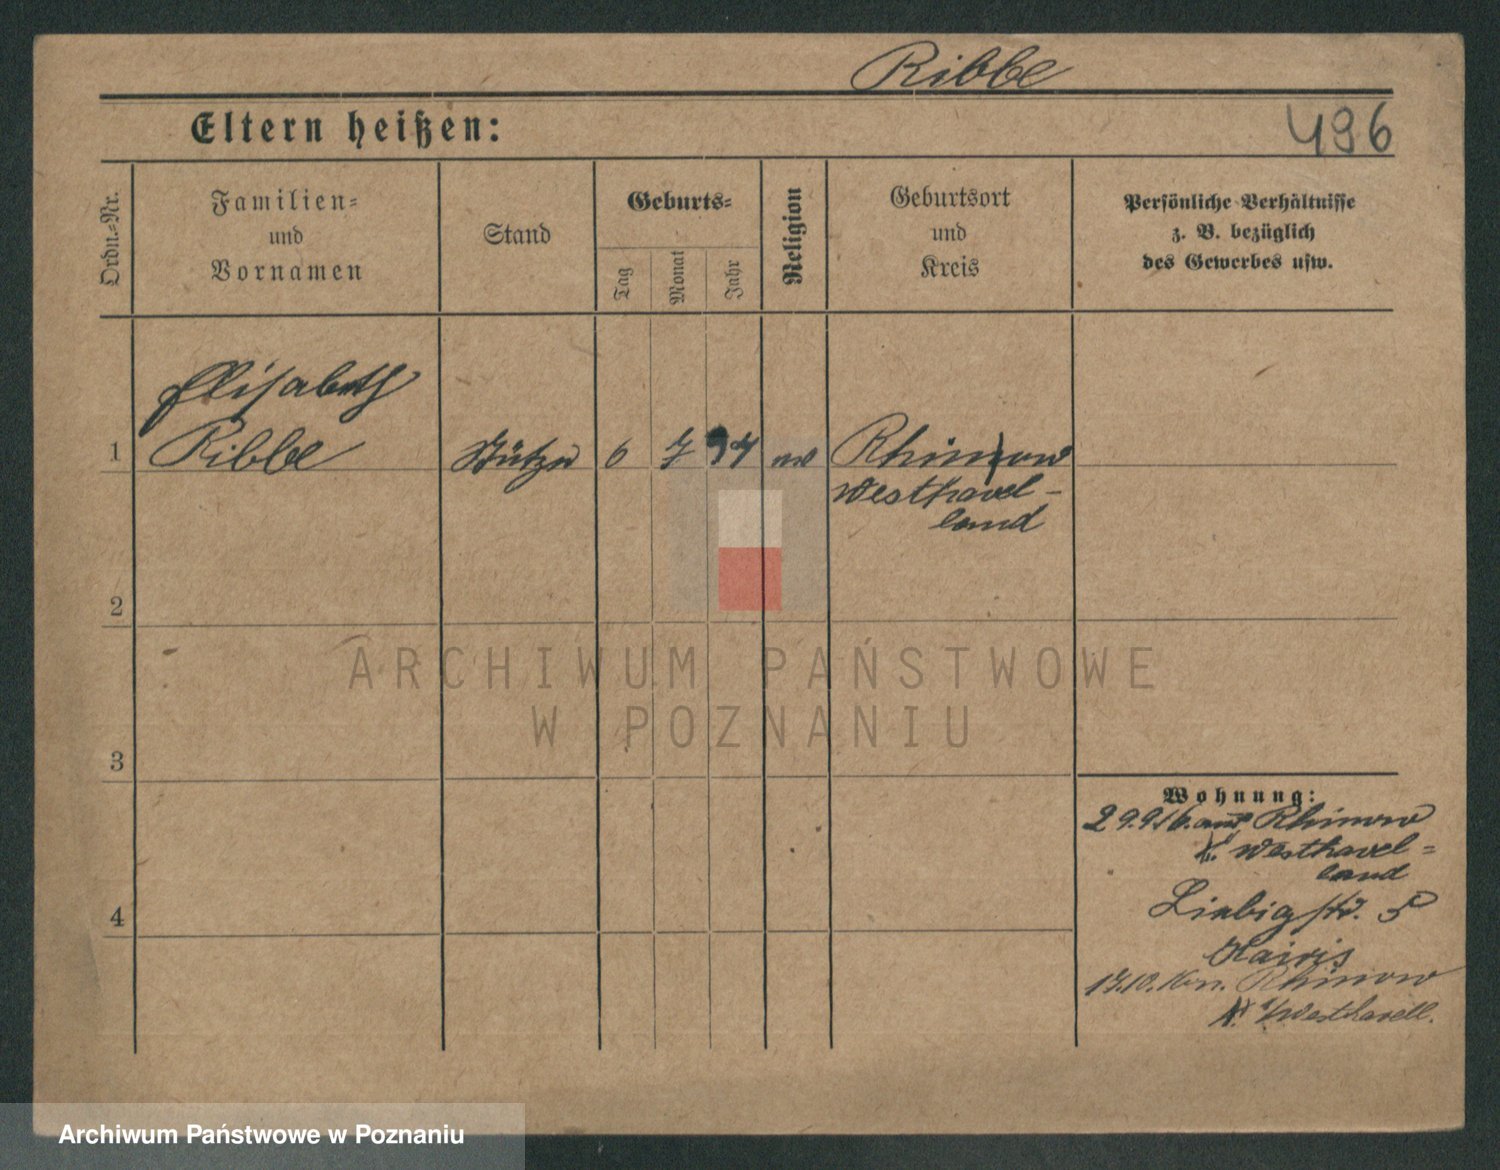 Ribbe
Eltern heißen:
496
Ordn.-Nr.
Familien-
und
Vornamen
Stand
Geburts-
Tag
Monat
Jahr
Religion
Geburtsort
und
Kreis
Persönliche Verhältnisse
z. B. bezüglich
des Gewerbes usw.
Elisabeth
1 Ribbe Stütze 6 7 97 ev Rhinow
Westhavel-
land
2
3
4
ARCHIWUM PAŃSTWOWE
W POZNANIU
Wohnung:
29.9.16. aus Rhinow
Westhavel-
land
Liebigstr. 5
17.10. Rhinow
Westhavell.
Archiwum Państwowe w Poznaniu